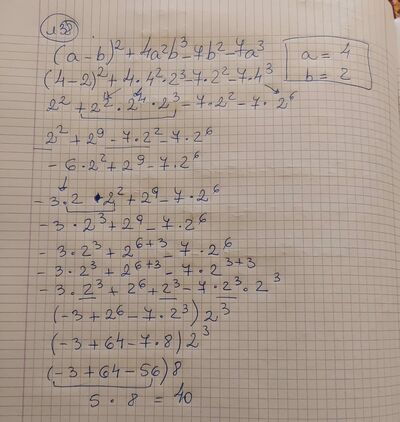 л38
(a-b)² + 4a²b³ - 7b² - 7a³
a = 4
b = 2
(4-2)² + 4·4²·2³ - 7·2² - 7·4³
2² + 2²·2⁴·2³ - 7·2² - 7·2⁶
2² + 2⁹ - 7·2² - 7·2⁶
- 6·2² + 2⁹ - 7·2⁶
- 3·2·2² + 2⁹ - 7·2⁶
- 3·2³ + 2⁹ - 7·2⁶
- 3·2³ + 2⁶⁺³ - 7·2⁶
- 3·2³ + 2⁶⁺³ - 7·2³⁺³
- 3·2³ + 2⁶ + 2³ - 7·2³·2³
(-3 + 2⁶ - 7·2³) 2³
(-3 + 64 - 7·8) 2³
(-3 + 64 - 56) 8
5 · 8 = 40